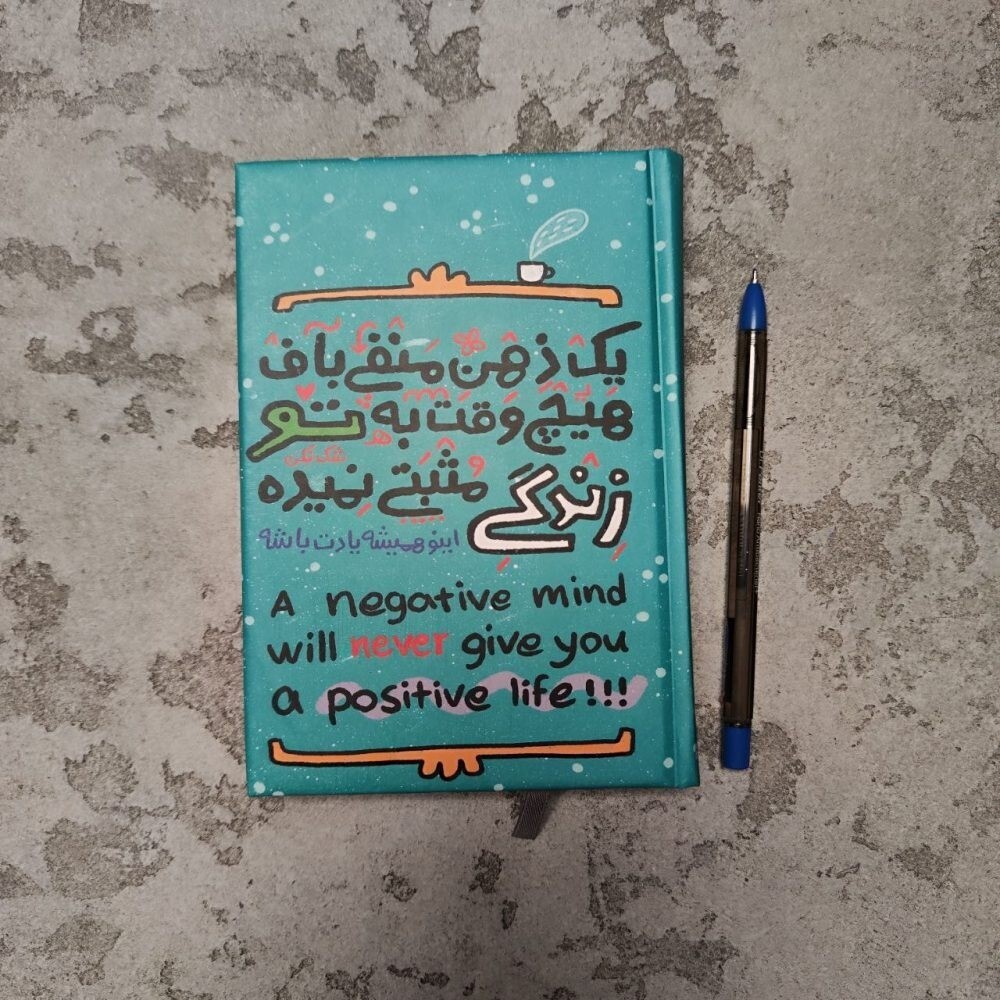 یک ذهن منفی باف
هیچ وقت به تو
زندگی مثبتی نمیده
شک نکن
اینو همیشه یادت باشه
A negative mind
will never give you
a positive life!!!